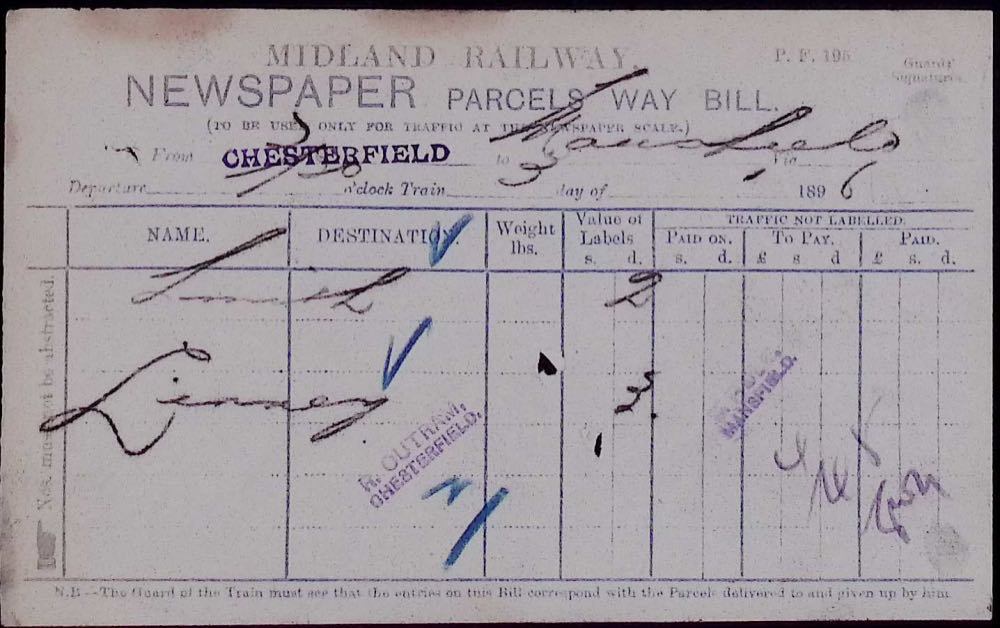 MIDLAND RAILWAY.
P. F. 195
Guards' Signatures
NEWSPAPER PARCELS WAY BILL.
(TO BE USED ONLY FOR TRAFFIC AT THE NEWSPAPER SCALE.)
From CHESTERFIELD to Mansfield Via
Departure 7/30 o'clock Train 3 day of 1896
NAME. DESTINATION. Weight lbs. Value of Labels s. d. TRAFFIC NOT LABELLED.
PAID ON. s. d. TO PAY. £ s d PAID. £ s. d.
Smith 2
Linney 3
R. OUTRAM, CHESTERFIELD.
MANSFIELD.
Nos. must not be abstracted.
N.B.—The Guard of the Train must see that the entries on this Bill correspond with the Parcels delivered to and given up by him